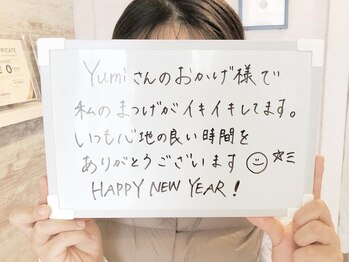 Yumiさんのおかげ様で
私のまつげがイキイキしてます。
いつも心地の良い時間を
ありがとうございます
HAPPY NEW YEAR!